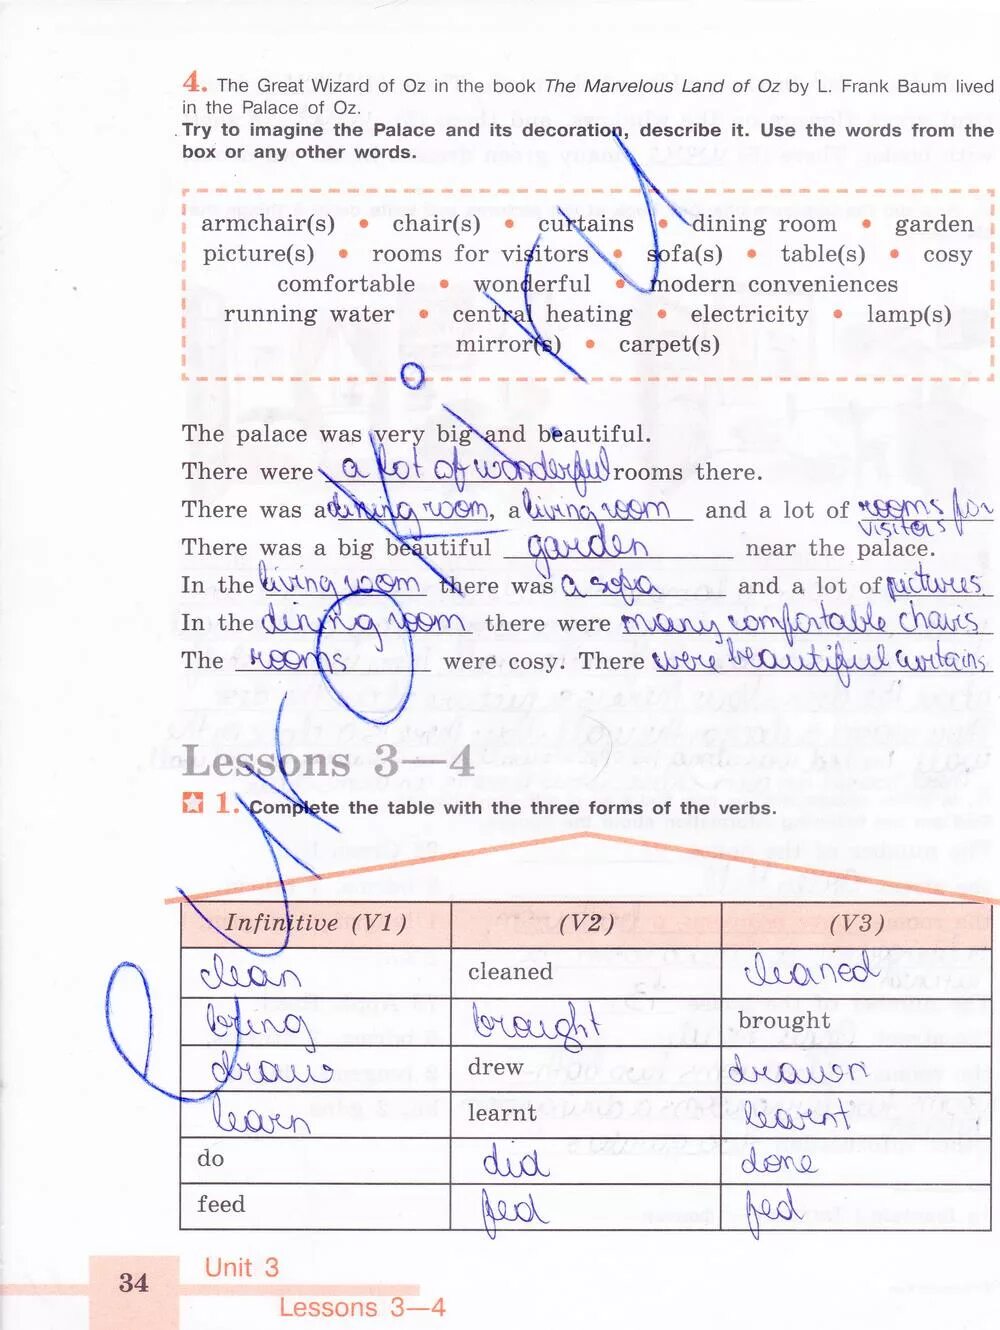 4. The Great Wizard of Oz in the book The Marvelous Land of Oz by L. Frank Baum lived
in the Palace of Oz.
Try to imagine the Palace and its decoration, describe it. Use the words from the
box or any other words.
armchair(s) • chair(s) • curtains • dining room • garden
picture(s) • rooms for visitors • sofa(s) • table(s) • cosy
comfortable • wonderful • modern conveniences
running water • central heating • electricity • lamp(s)
mirror(s) • carpet(s)
The palace was very big and beautiful.
There were a lot of wonderful rooms there.
There was a dining room, a living room and a lot of rooms for
visiters
There was a big beautiful garden near the palace.
In the living room there was a sofa and a lot of pictures
In the dining room there were many comfortable chairs
The rooms were cosy. There were beautiful curtains
Lessons 3—4
1. Complete the table with the three forms of the verbs.
Infinitive (V1) (V2) (V3)
clean cleaned cleaned
bring brought brought
draw drew drawn
learn learnt learnt
do did done
feed fed fed
34 Unit 3
Lessons 3—4